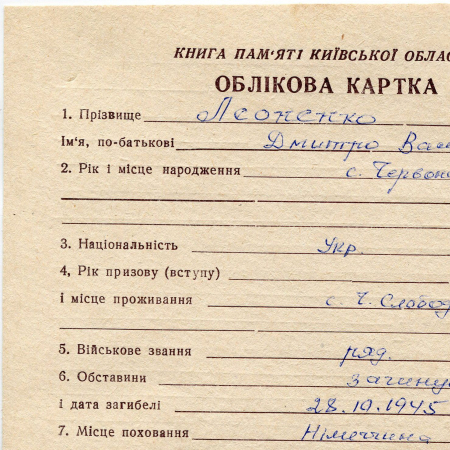 КНИГА ПАМ'ЯТІ КИЇВСЬКОЇ ОБЛАС
ОБЛІКОВА КАРТКА
1. Прізвище Леоненко
Ім'я, по-батькові Дмитро Вас
2. Рік і місце народження с. Червон
3. Національність Укр.
4, Рік призову (вступу)
і місце проживання с. Ч. Слобод
5. Військове звання ряд.
6. Обставини загину
і дата загибелі 28.10.1945
7. Місце поховання Німеччина